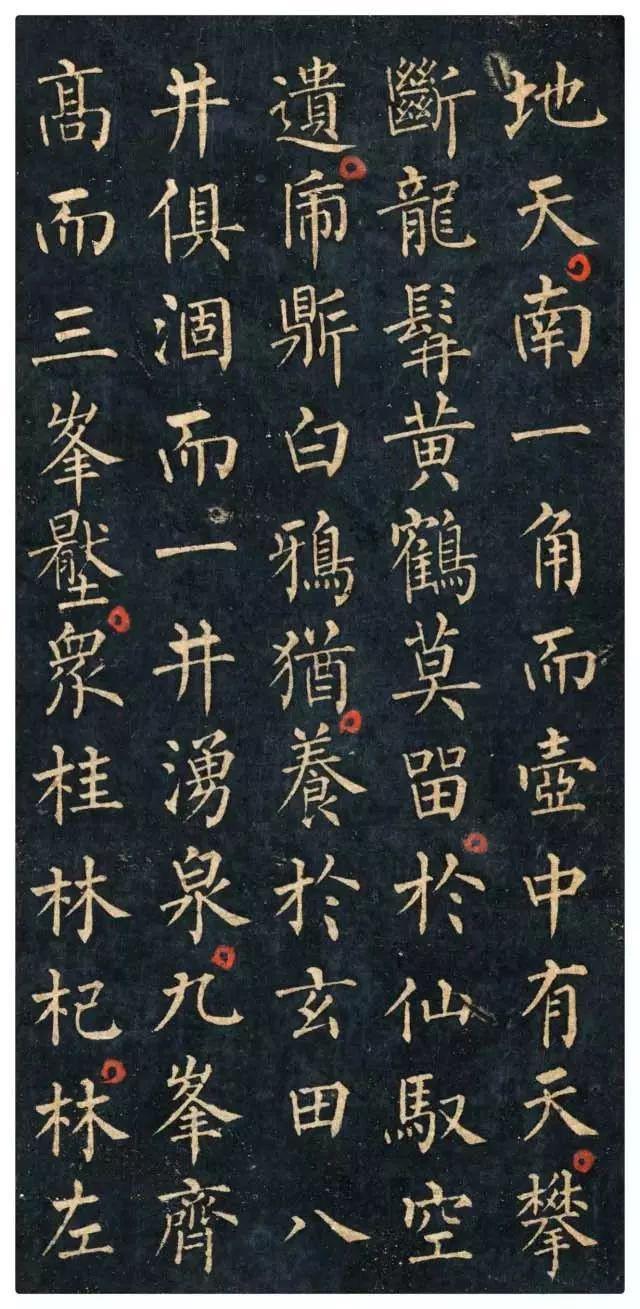 地天南一角而壺中有天攀
斷龍髯黃鶴莫畱於仙馭空
遺乕鼎白鴉猶養於玄田八
井俱涸而一井湧泉九峯齊
髙而三峯壓衆桂林杞林左